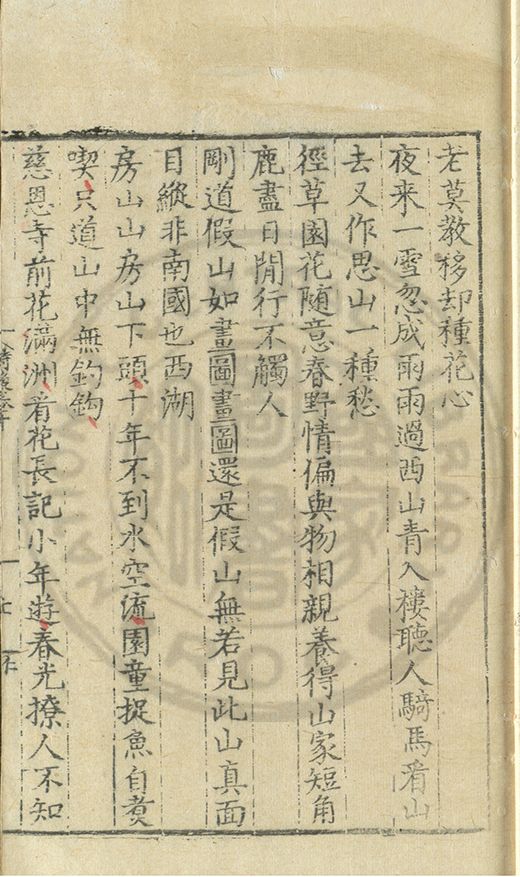 老莫教移却種花心
夜来一雪忽成雨雨過西山青入樓聽人騎馬看山
去又作思山一種愁
徑草園花随意春野情偏與物相親養得山家短角
鹿盡日閒行不觸人
剛道假山如畫圖畫圖還是假山無若見此山真面
目縱非南國也西湖
房山山房山下頭十年不到水空流園童捉魚自煑
喫只道山中無釣鈎
慈恩寺前花滿洲看花長記小年遊春光撩人不知